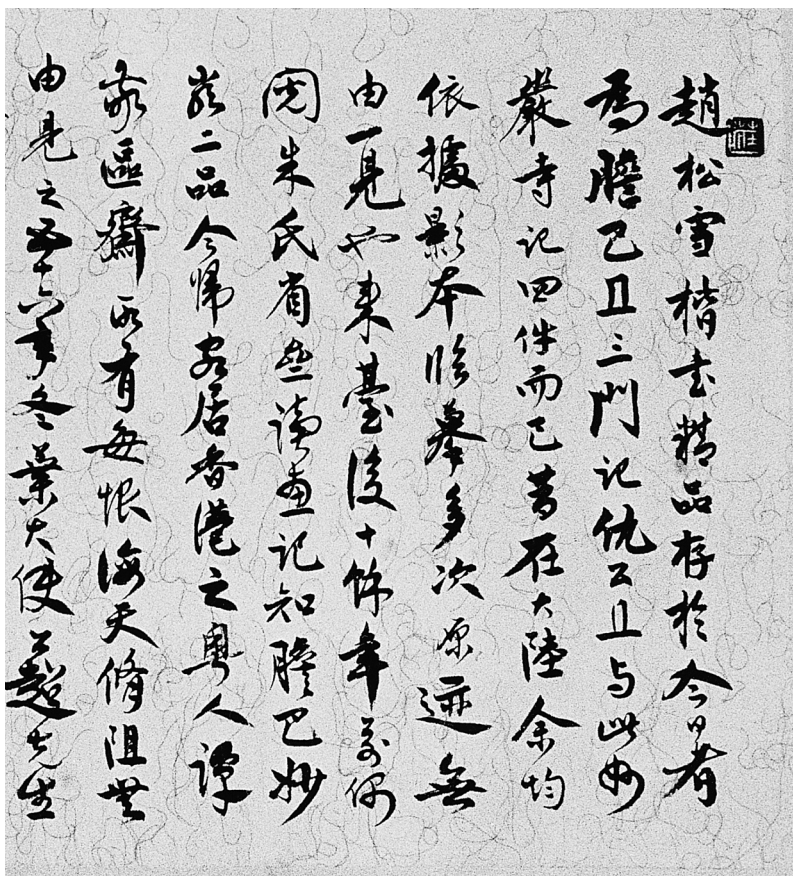 趙松雪楷書精品存於今日者
為膽巴三門記仇公与此妙
嚴寺記四件而已昔在大陸余均
依據影本臨摹多次原迹無
由一見也來臺後十餘年前偶
閱朱氏省齋讀畫記知膽巴妙
嚴二品今歸客居香港之粵人譚
敬區齋所有每恨海天脩阻無
由見之五十六年冬葉大使公超先生